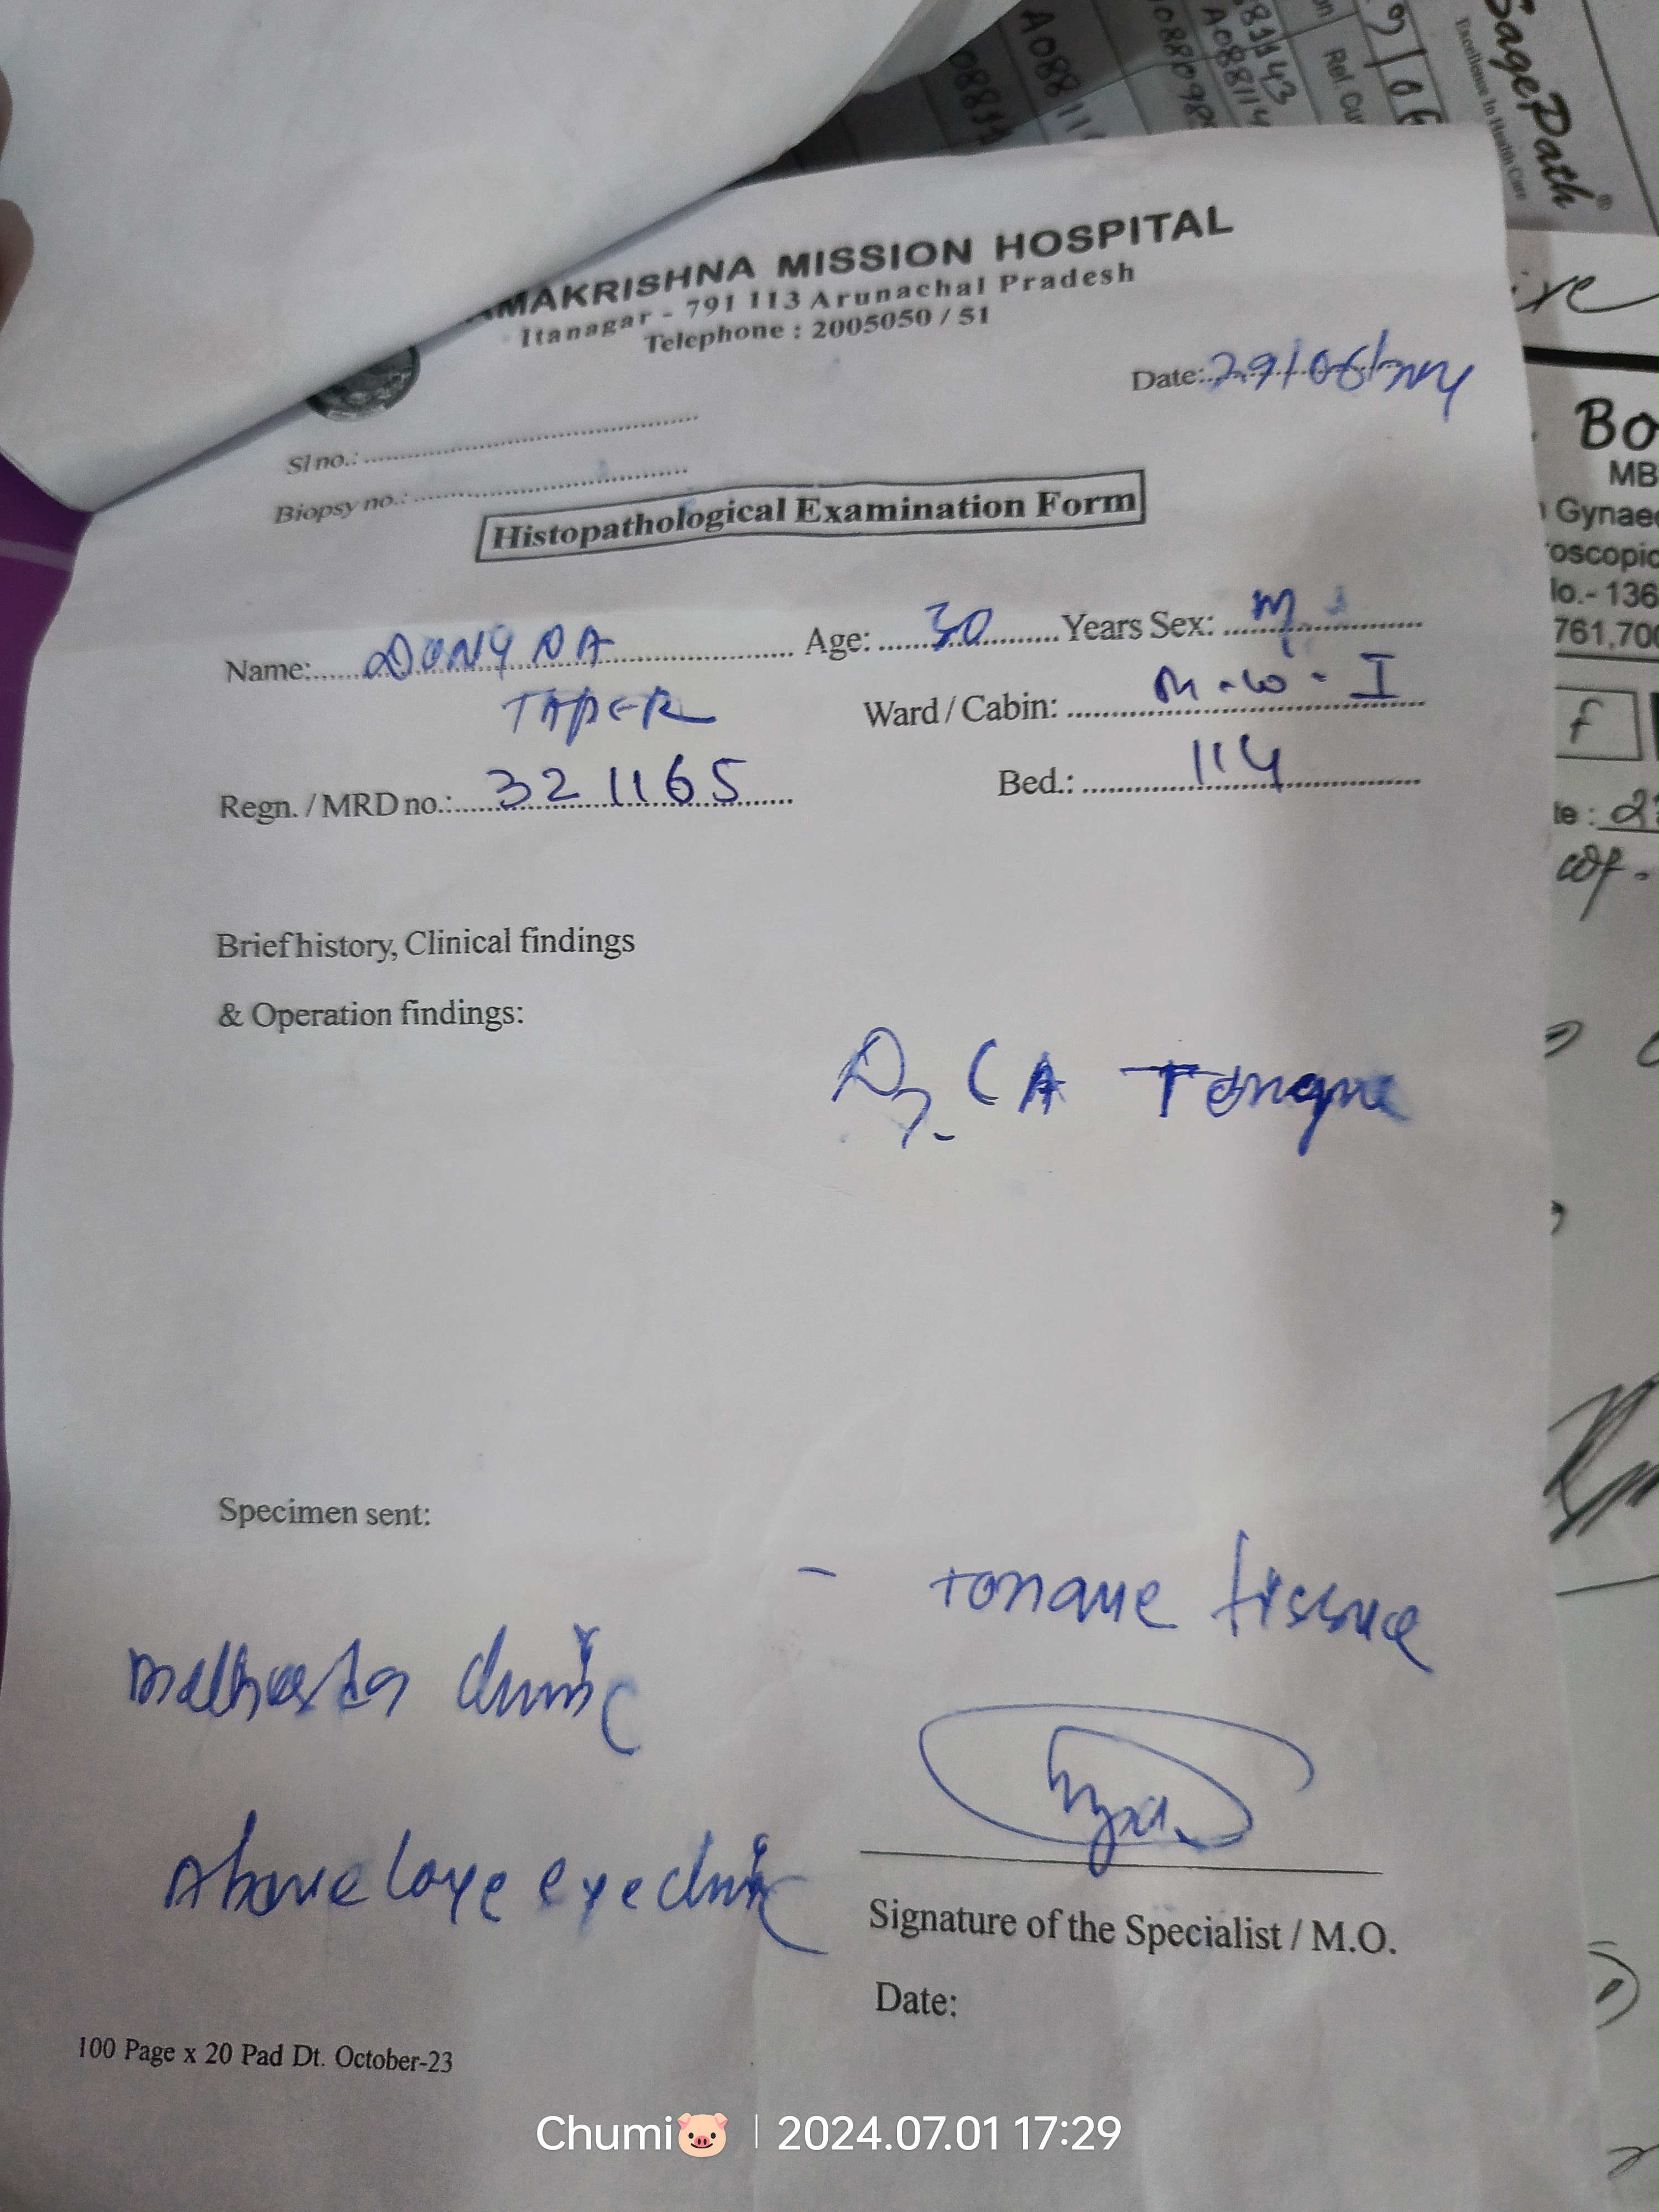 SagePath®
Excellence In Health Care
A0881143
A088114
A088098
A08811
08811
Rel. Cu
MAKRISHNA MISSION HOSPITAL
Itanagar - 791 113 Arunachal Pradesh
Telephone : 2005050 / 51
Date: 29/06/2024
Sl no.:
Biopsy no.:
Histopathological Examination Form
Name: DONY DA Age: 30 Years Sex: M
TAPER Ward / Cabin: M.W - I
Regn. / MRD no.: 321165 Bed.: 114
Brief history, Clinical findings
& Operation findings:
D, CA Tongue
Specimen sent:
- Tongue tissue
clinic
Above eye clinic
Signature of the Specialist / M.O.
Date:
100 Page x 20 Pad Dt. October-23
Bo
MB
Gynae
oscopic
lo.- 136
761,700
f
te :
Chumi🐷 | 2024.07.01 17:29